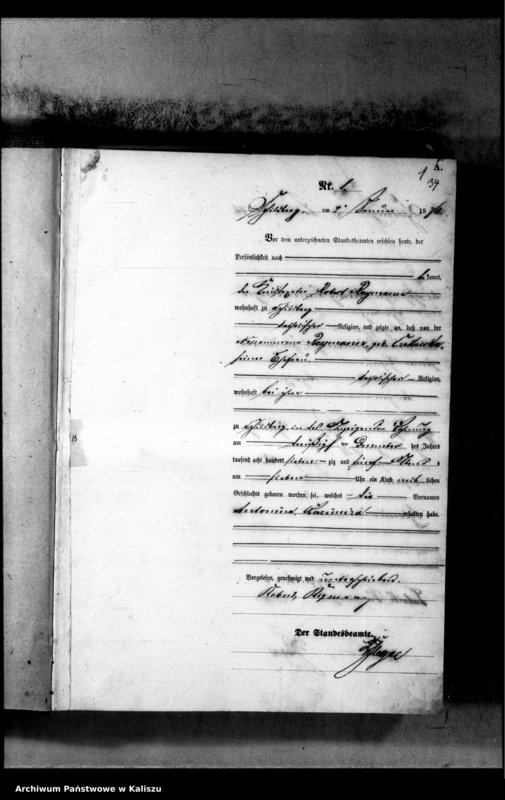 A.
1
34
Nr. 1
Schildberg, am 3t Januar 1876
Vor dem unterzeichneten Standesbeamten erschien heute, der
Persönlichkeit nach
be kannt,
der
Robert Raymann
wohnhaft zu Schildberg
katholischer Religion, und zeigte an, daß von der
Raymann, geb.
seiner Ehefrau
katholischer Religion,
wohnhaft bei ihm
zu Schildberg in des Wohnung
am dreißigsten Dezember des Jahres
tausend acht hundert sieben zig und fünf
um sieben Uhr ein Kind weib lichen
Geschlechts geboren worden sei, welches die Vornamen
Antonina Kazimira erhalten habe.
Vorgelesen, genehmigt und unterschrieben.
Robert Raymann
Der Standesbeamte.
Archiwum Państwowe w Kaliszu